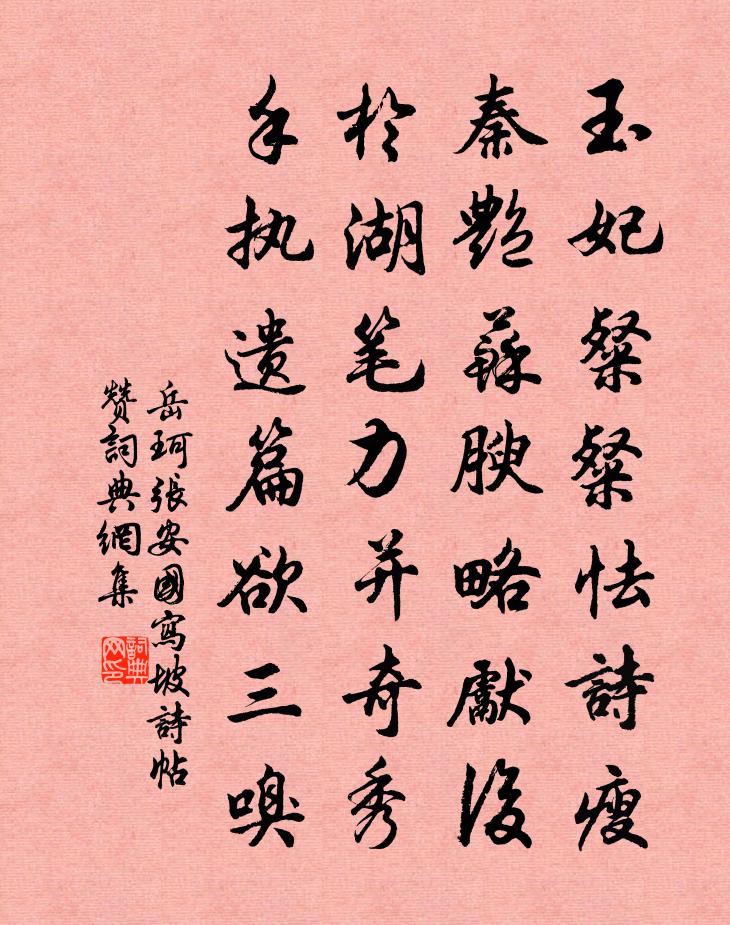 玉妃粲粲怯詩瘦
秦艷蘇腴略獻後
於湖笔力并奇秀
手执遗篇欲三嗅
岳珂張安國寫坡詩帖
赞詞典網集
詞典网印